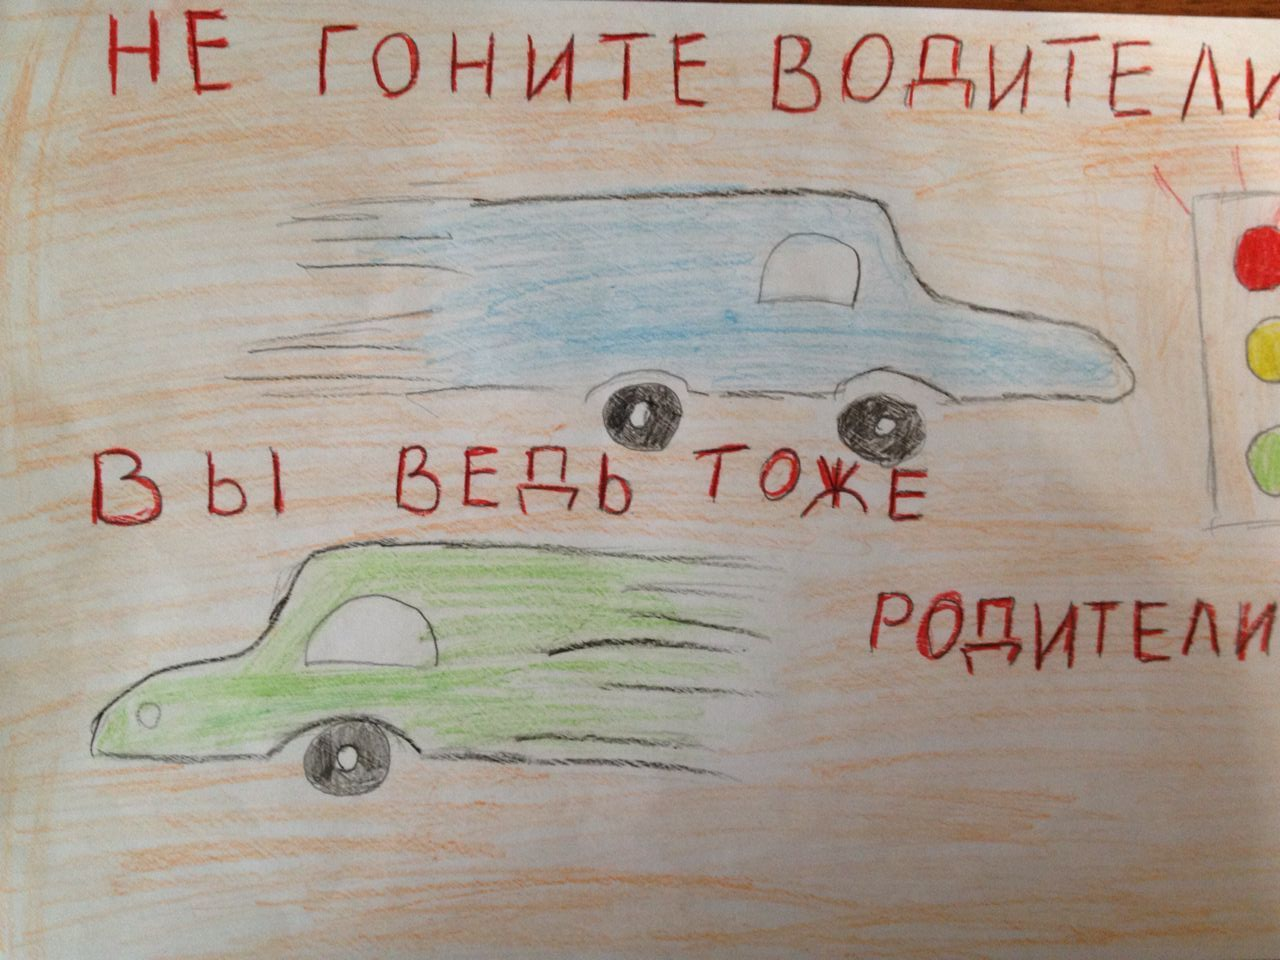 НЕ ГОНИТЕ ВОДИТЕЛИ
ВЫ ВЕДЬ ТОЖЕ
РОДИТЕЛИ